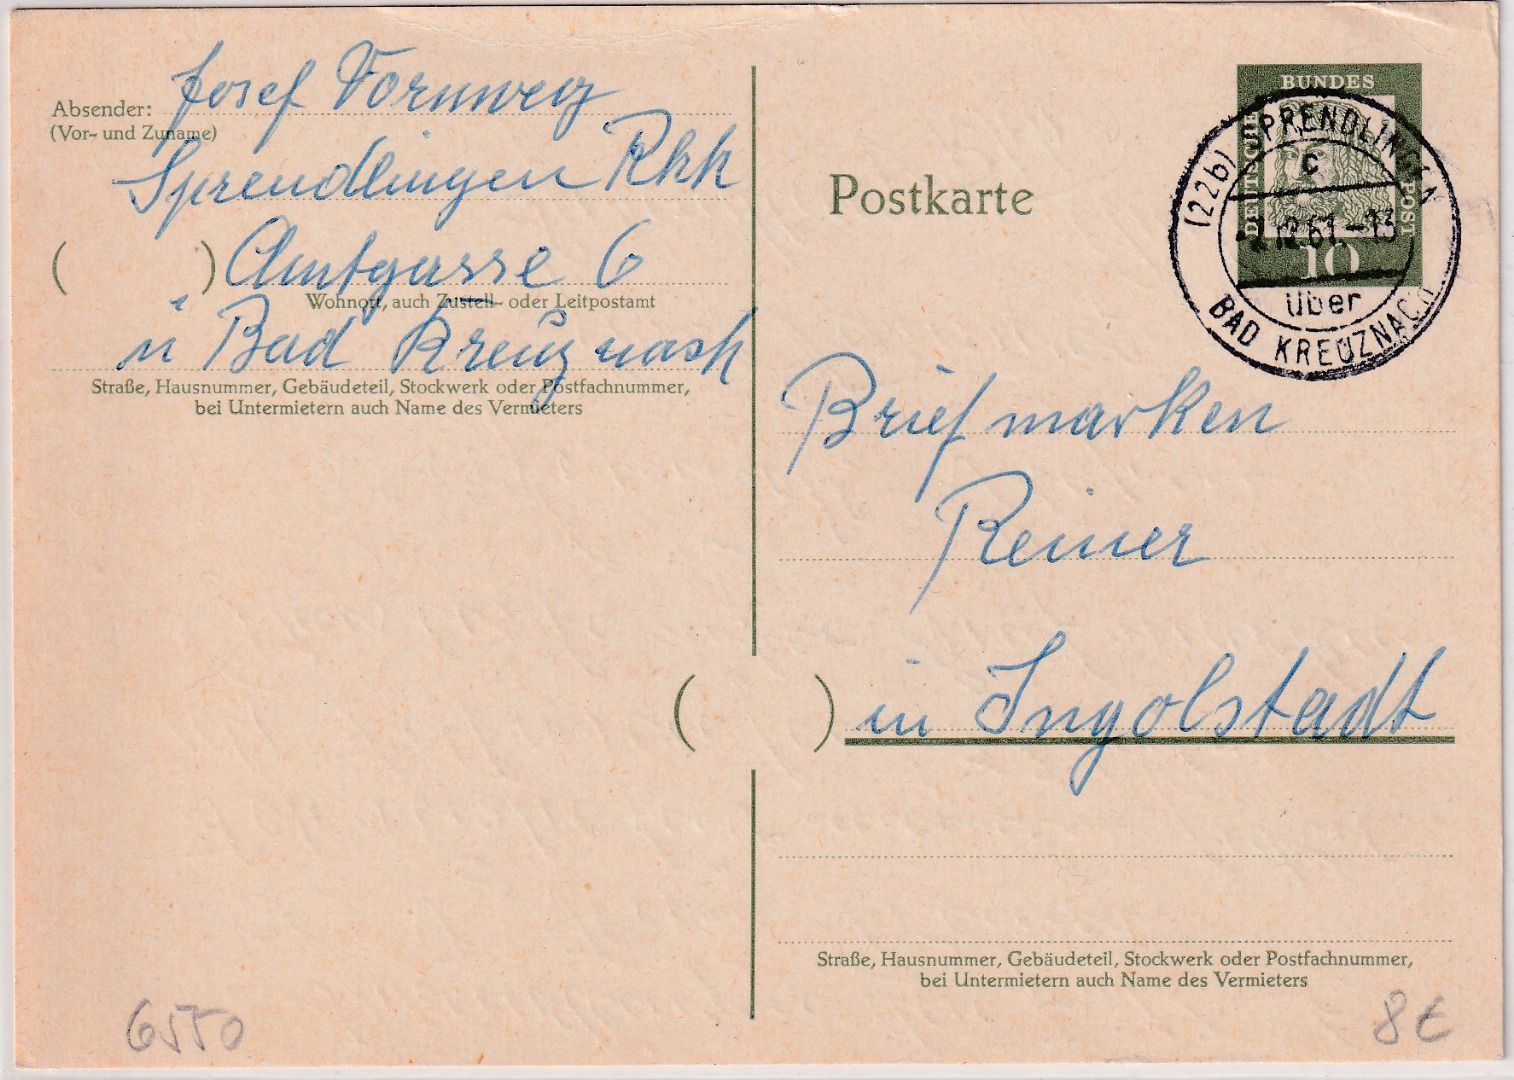 Absender: Josef Vornweg
(Vor- und Zuname)
Sprendlingen Rhh
( ) Amtgasse 6
Wohnort, auch Zustell- oder Leitpostamt
ü Bad Kreuznach
Straße, Hausnummer, Gebäudeteil, Stockwerk oder Postfachnummer,
bei Untermietern auch Name des Vermieters
Postkarte
DEUTSCHE
BUNDES
POST
10
(22b) SPRENDLINGEN
c
über
BAD KREUZNACH
Briefmarken
Reiner
( ) in Ingolstadt
Straße, Hausnummer, Gebäudeteil, Stockwerk oder Postfachnummer,
bei Untermietern auch Name des Vermieters
6550
8€